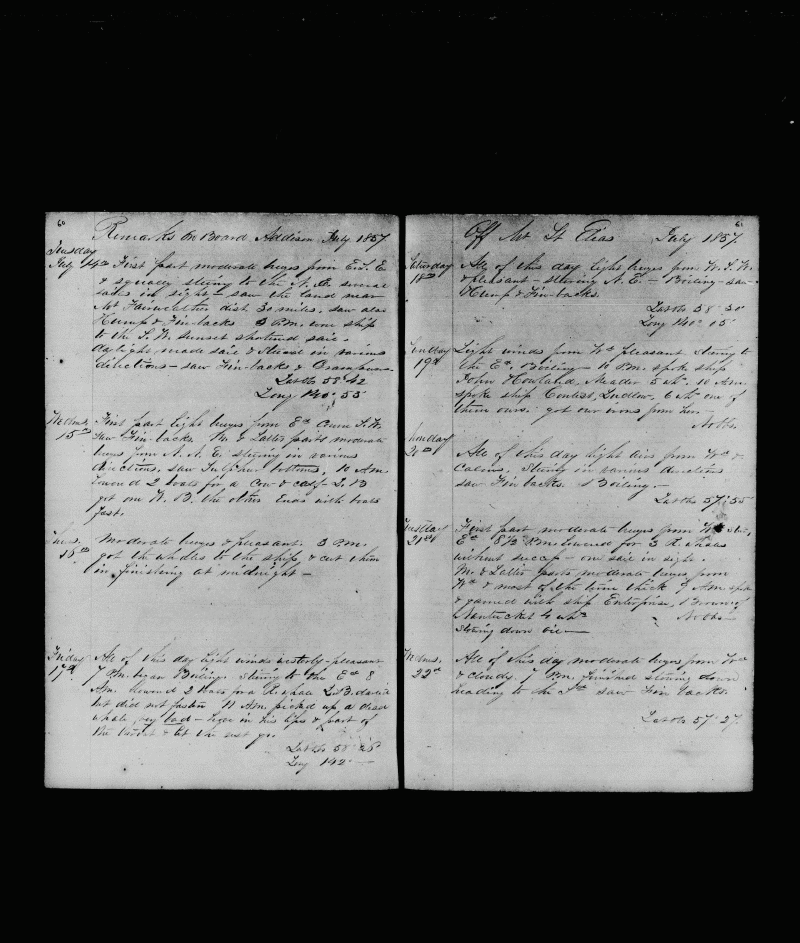 60
Remarks on Board Addison July 1857
Tuesday
July 14th First part moderate breezes from E.S.E
& squally steering to the N.E. several
sails in sight - saw the land near
Mt Fairweather dist 30 miles. saw also
Hump & Fin-backs 3 P.M. wore ship
to the S.W. sunset shortened sail.
daylight made sail & steered in various
directions - saw Fin-backs &
Lat obs 58.42
Long 140.55
Wednes. First part light breezes from Ed
15th saw Fin-backs. M & Latter parts moderate
breezes from N.N.E. steering in various
directions, saw Sulphur bottoms, 10 A.M.
lowered 2 boats for a cow & calf L.B
got one W.B. the other Ends with boats
fast.
Thurs. Moderate breezes & pleasant. 3 P.M.
16th got the whales to the ship & cut them
in finishing at midnight -
Friday All of this day light winds westerly - pleasant
17th 7 P.M. began Boiling. steering to the Ed 8
A.M. lowered 2 boats for a R. whale L.B. darted
but did not fasten 11 A.M. picked up a dead
whale, very bad - in his lips & part of
the & let the rest go.
Lat obs 58.28
Long 142 -
61
Off Mt St Elias July 1857.
Saturday All of this day light breezes from W.S.W.
18th & pleasant - steering N.E. - Boiling - saw
Hump & Fin-backs.
Lat obs 58.30
Long 140.05
Sunday Light winds from Wd pleasant steering to
19th the Ed. Boiling - 10 P.M. spoke ship
John Howland, Meader 5 wh. 10 A.M.
spoke ship Contest, Ludlow, 6 wh one of
them ours. got our irons from her -
No obs.
Monday
20th All of this day light airs from Wd &
calms. Steering in various directions
saw Fin backs. Boiling.
Lat obs 57.55
Tuesday First part moderate breezes from Wd ster,
21st Ed 8½ P.M. lowered for 3 R. whales
without success - one sail in sight.
M. & Latter parts moderate breezes from
Wd & most of the time thick 9 A.M. spoke
& gamed with ship Enterprise, Brown of
Nantucket 4 whs No obs
Stowing down oil
Wednes. All of this day moderate breezes from Wd
22nd & cloudy. 7 P.M. finished stowing down
heading to the Sd saw Fin backs.
Lat obs 57.27.